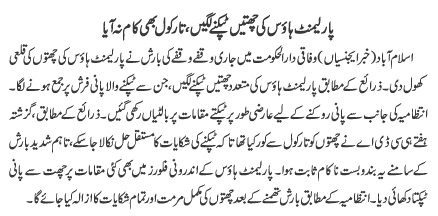 پارلیمنٹ ہاؤس کی چھتیں ٹپکنے لگیں، تارکول بھی کام نہ آیا
اسلام آباد (خبر ایجنسیاں) وفاقی دارالحکومت میں جاری وقفے وقفے کی بارش نے پارلیمنٹ ہاؤس کی چھتوں کی قلعی
کھول دی۔ ذرائع کے مطابق پارلیمنٹ ہاؤس کی متعدد چھتیں ٹپکنے لگیں، جن سے ٹپکنے والا پانی فرش پر جمع ہونے لگا۔
انتظامیہ کی جانب سے پانی روکنے کے لیے عارضی طور پر ٹپکتے مقامات پر بالٹیاں رکھی گئیں۔ ذرائع کے مطابق، گزشتہ
ہفتے ہی سی ڈی اے نے چھتوں کو تارکول سے کور کیا تھا تاکہ ٹپکنے کی شکایات کا مستقل حل نکالا جا سکے، تاہم شدید بارش
کے سامنے یہ بندوبست ناکام ثابت ہوا۔ پارلیمنٹ ہاؤس کے اندرونی فلورز میں بھی کئی مقامات پر چھت سے پانی
ٹپکتا دکھائی دیا۔ انتظامیہ کے مطابق بارش تھمنے کے بعد چھتوں کی مکمل مرمت اور تمام شکایات کا ازالہ کیا جائے گا۔